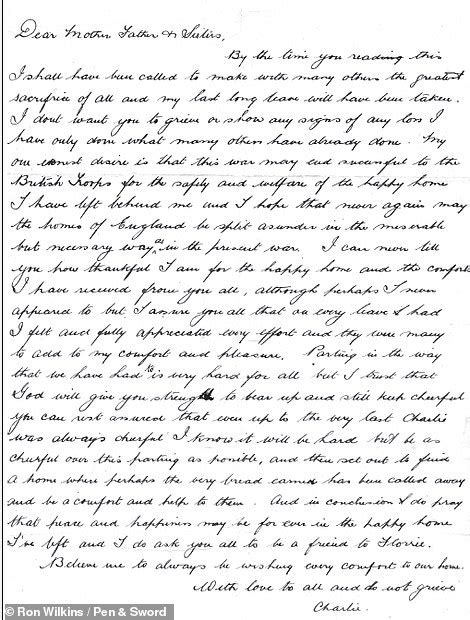 Dear Mother Father & Sisters,
By the time you reading this
I shall have been called to make with many others the greatest
sacrifice of all and my last long leave will have been taken.
I dont want you to grieve or show any signs of any loss I
have only done what many others have already done. My
one desire is that this war may end succesful to the
British Troops for the safety and welfare of the happy home
I have left behind me and I hope that never again may
the homes of England be split asunder in the meserable
but necessary way as in the present war. I can never tell
you how thankful I am for the happy home and the comforts
I have received from you all, although perhaps I never
appeared to but I assure you all that on every leave I had
I felt and fully appreciated every effort and they were many
to add to my comfort and pleasure. Parting in the way
that we have had to is very hard for all but I trust that
God will give you strength to bear up and still keep cheerful
you can rest assured that even up to the very last Charlie
was always cheerful I know it will be hard but be as
cheerful over this parting as possible, and then set out to find
a home where perhaps the very bread earner has been called away
and be a comfort and help to them. And in conclusion I do pray
that peace and happiness may be for ever in the happy home
I've left and I do ask you all to be a friend to Florrie.
Believe me to always be wishing every comfort to our home.
With love to all and do not grieve
Charlie.
© Ron Wilkins / Pen & Sword